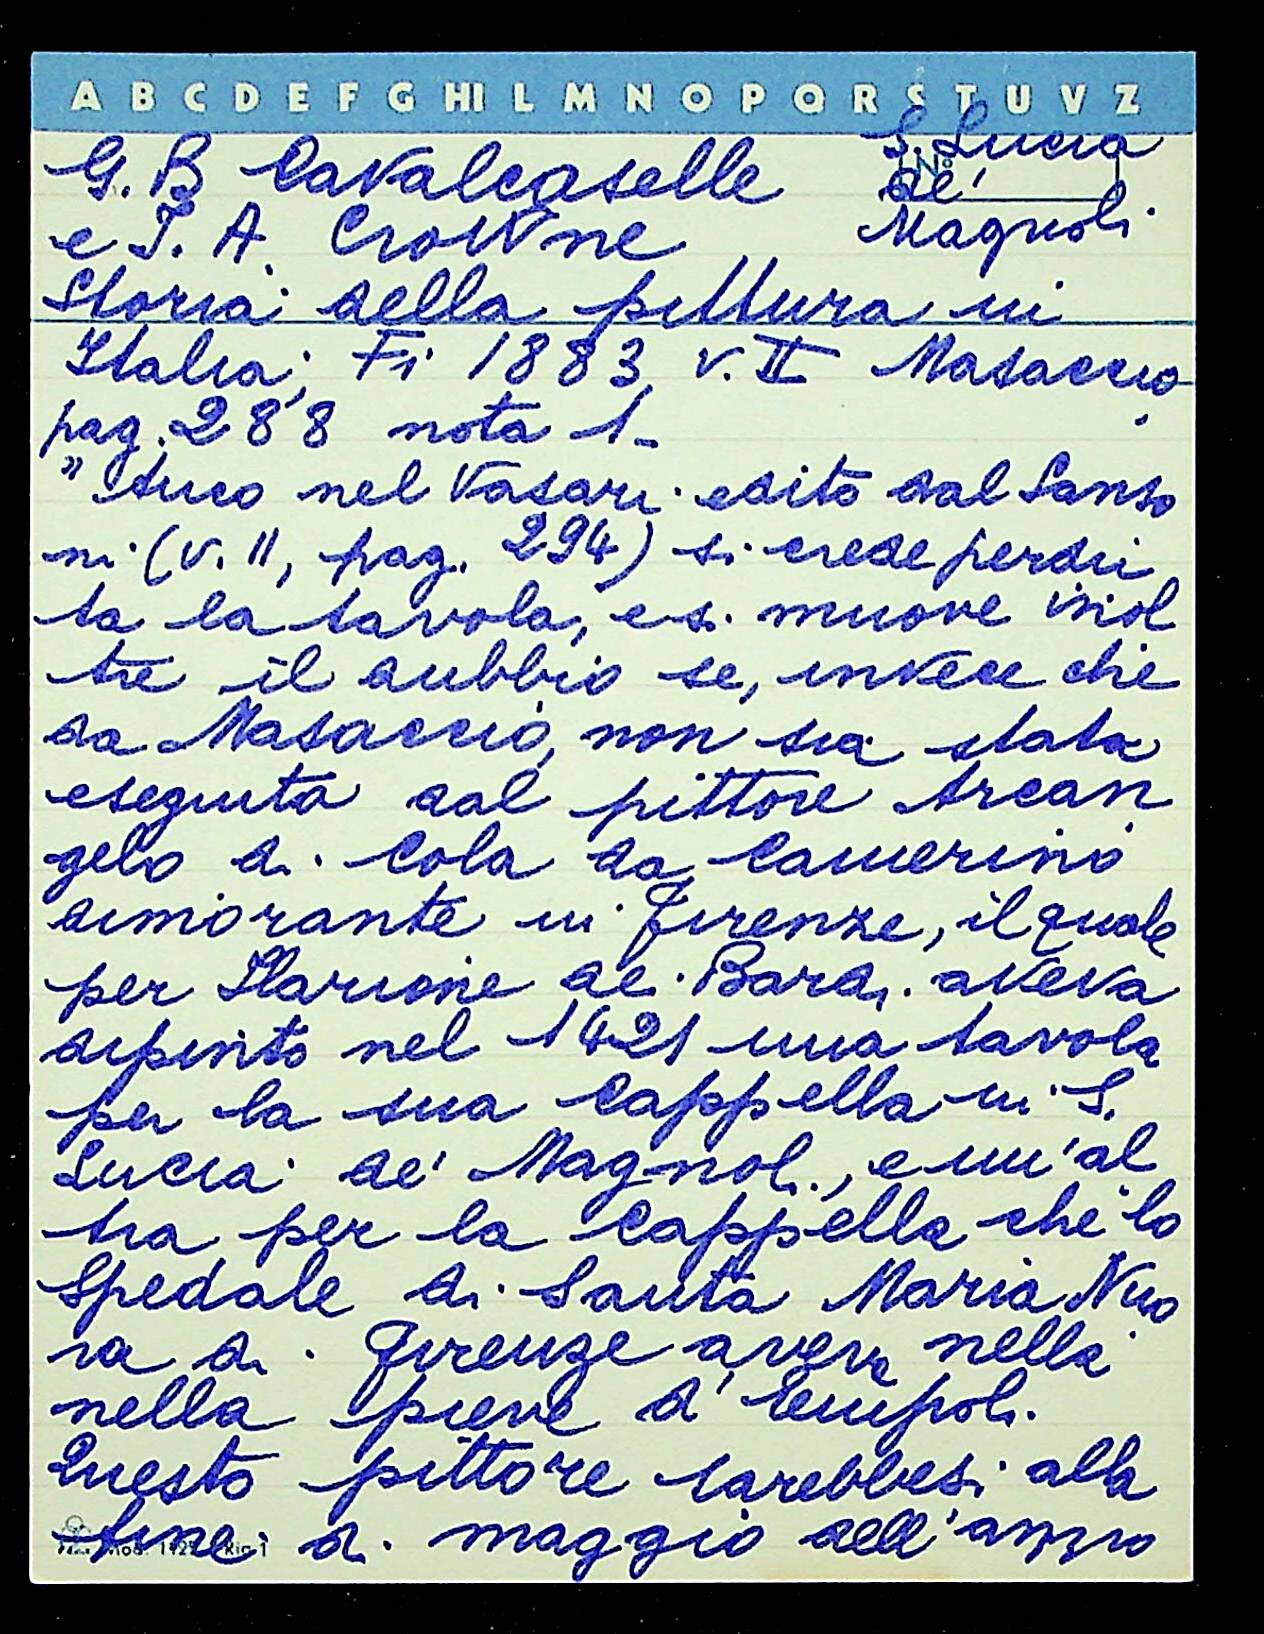 A B C D E F G HI L M N O P Q R S T U V Z
G. B Cavalcaselle
S. Lucia
N°
de'
e J. A. Crowne
Magnoli
Storia della pittura in
Italia, Fi 1883, v. II Masaccio,
pag. 288 nota 1-
" Anco nel Vasari edito dal Sanso
ni (v. II, pag. 294) si crede perdu
ta la tavola, e si muove inol
tre il dubbio se, invece che
da Masaccio, non sia stata
eseguita dal pittore Arcan
gelo di Cola da Camerino
dimorante in Firenze, il quale
per Ilarione de' Bardi aveva
dipinto nel 1421 una tavola
per la sua Cappella in S.
Lucia de' Magnoli, e un'al
tra per la Cappella che lo
Spedale di Santa Maria Nuo
va di Firenze aveva nella
nella pieve d'Empoli.
Questo pittore sarebbesi alla
fine di maggio dell'anno